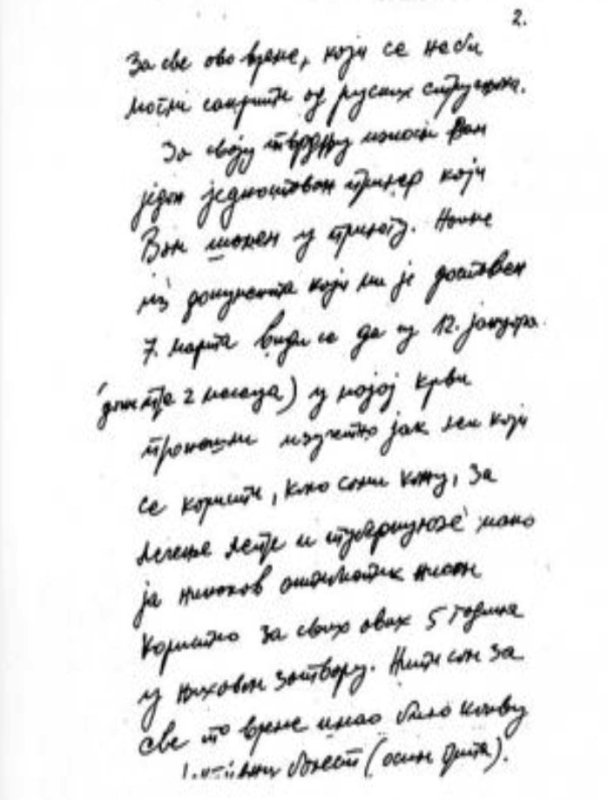 2.
За све ово време, који се неби
могли сакрити од руских стручњака.
За своју тврдњу износим Вам
један једноставан пример који
Вам шаљем у прилогу. Наиме
из документа који ми је достављен
7. марта види се да су 12. јануара
(дакле пре 2 месеца) у мојој крви
пронашли изузетно јак лек који
се користи, како сами кажу, за
лечење лепре и туберкулозе иако
ја никакав антибиотик нисам
користио за свих ових 5 година
у њиховом затвору. Нити сам за
све то време имао било какву
болест (осим грипа).